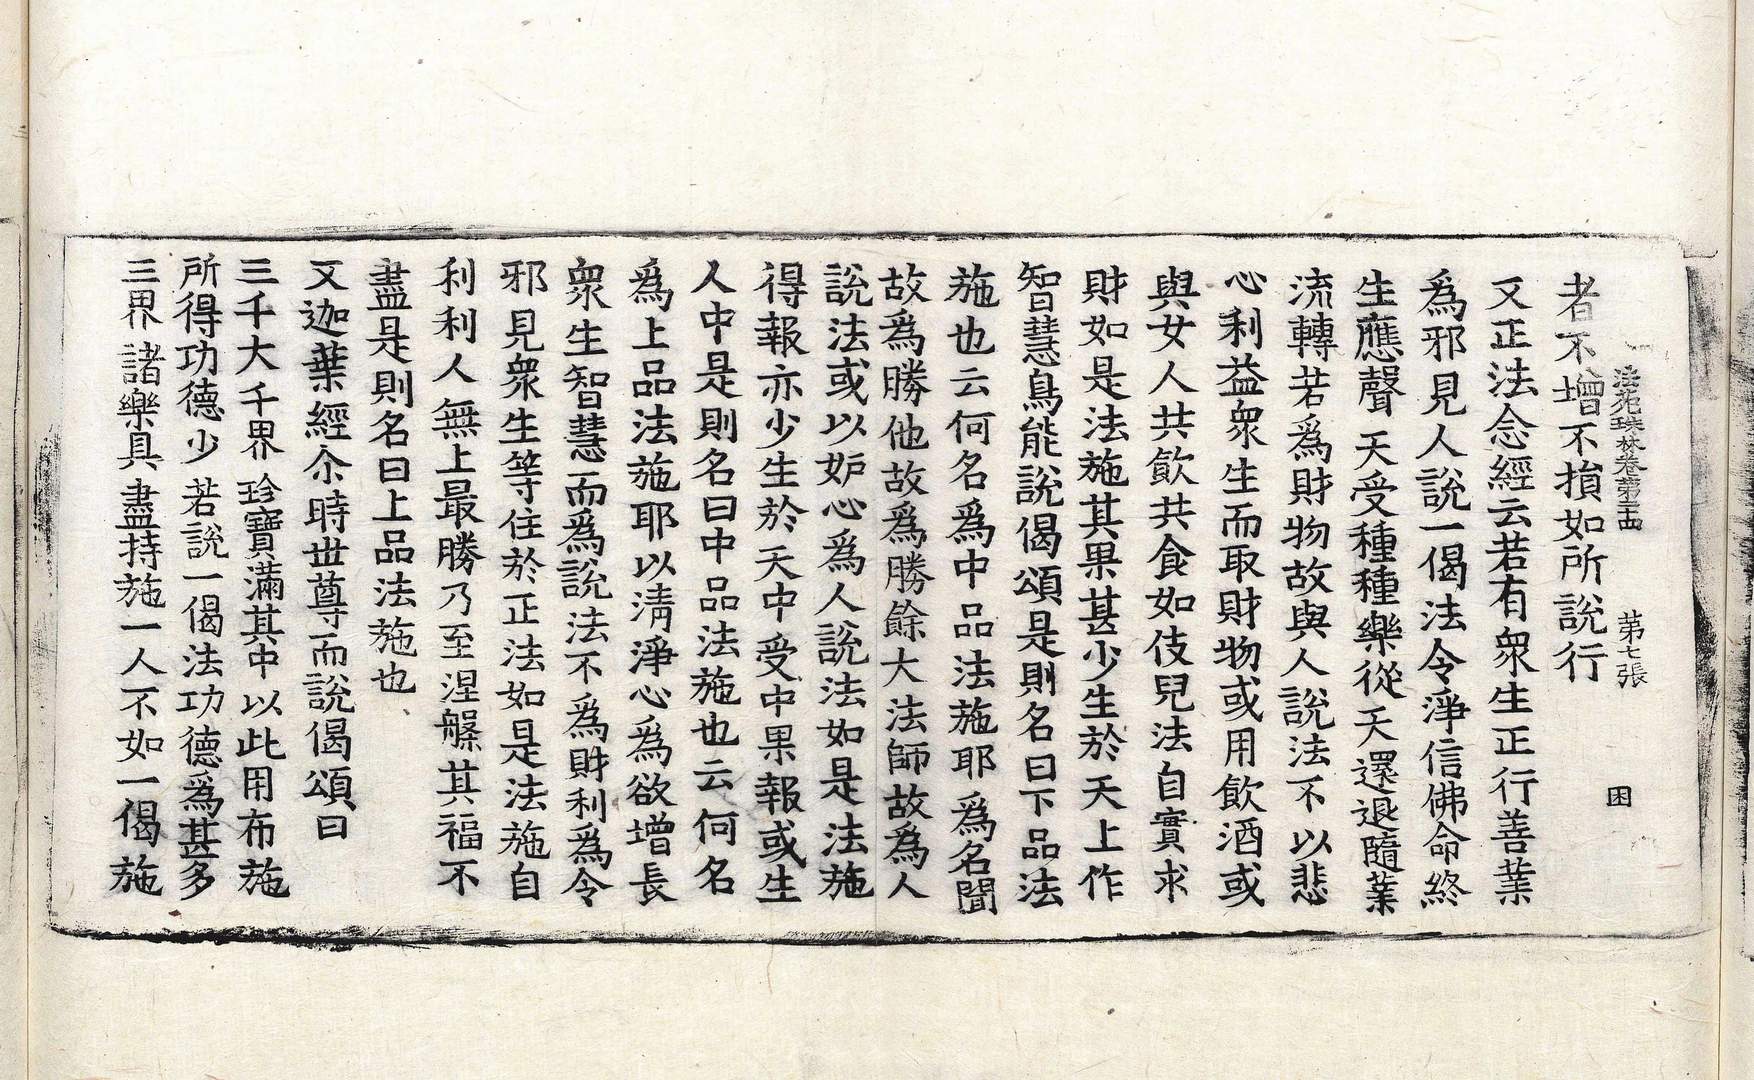 法苑珠林卷第二十四　第七張　困
者不增不損如所說行
又正法念經云若有衆生正行善業
爲邪見人說一偈法令淨信佛命終
生應聲天受種種樂從天還退隨業
流轉若爲財物故與人說法不以悲
心利益衆生而取財物或用飲酒或
與女人共飲共食如伎兒法自實求
財如是法施其果甚少生於天上作
智慧鳥能說偈頌是則名曰下品法
施也云何名爲中品法施耶爲名聞
故爲勝他故爲勝餘大法師故爲人
說法或以妒心爲人說法如是法施
得報亦少生於天中受中果報或生
人中是則名曰中品法施也云何名
爲上品法施耶以清淨心爲欲增長
衆生智慧而爲說法不爲財利爲令
邪見衆生等住於正法如是法施自
利利人無上最勝乃至涅槃其福不
盡是則名曰上品法施也
又迦葉經尒時世尊而說偈頌曰
三千大千界　珍寶滿其中　以此用布施
所得功德少　若說一偈法　功德爲甚多
三界諸樂具　盡持施一人　不如一偈施